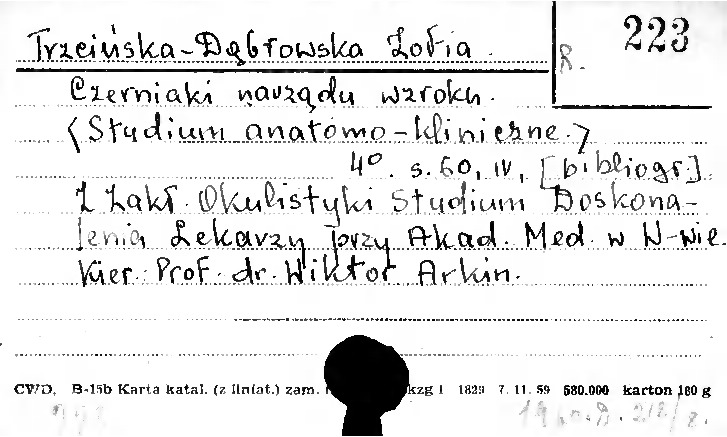 Trzcińska-Dąbrowska Zofia.
R. 223
Czerniaki narządu wzroku.
(Studium anatomo-kliniczne.)
4°. s. 60, IV, [bibliogr.]
Z Zakł. Okulistyki Studium Doskona-
lenia Lekarzy przy Akad. Med. w W-wie.
Kier.: Prof. dr. Wiktor Arkin.
CWD, B-15b Karta katal. (z liniat.) zam. kzg I 1829 7. 11. 59 580.000 karton 180 g